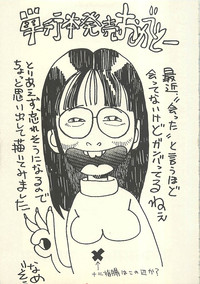 単行本発売おめでとー
最近、“会った”と言うほど
会ってないけどガンバってるねぇ
とりあえず忘れそうになるので
ちょっと思い出して描いてみました
はこの辺か?